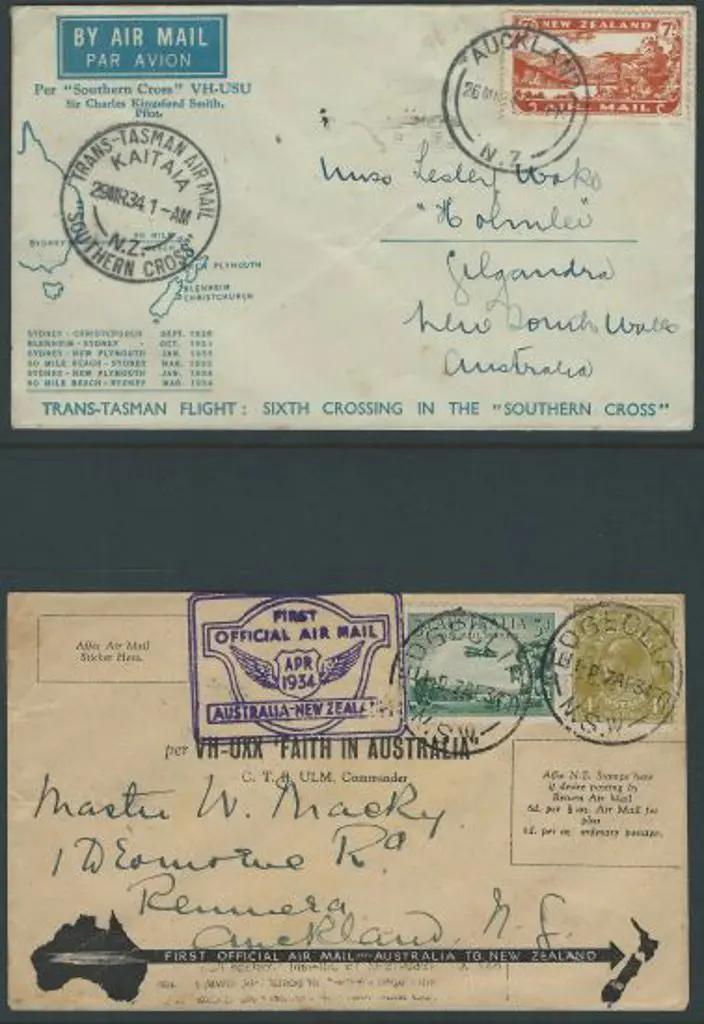 BY AIR MAIL
PAR AVION
Per "Southern Cross" VH-USU
Sir Charles Kingsford Smith,
Pilot.
NEW ZEALAND
7D
AIR MAIL
AUCKLAND
26 MR
N.Z.
TRANS-TASMAN AIR MAIL
KAITAIA
29MR34 1-AM
N.Z.
"SOUTHERN CROSS"
SYDNEY
90 MILE
BEACH
NEW PLYMOUTH
BLENHEIM
CHRISTCHURCH
Miss Lesley
"Holmlei"
Gilgandra
New South Wales
Australia
SYDNEY - CHRISTCHURCH SEPT.
BLENHEIM - SYDNEY - OCT.
SYDNEY - NEW PLYMOUTH JAN.
90 MILE BEACH - SYDNEY MAR.
SYDNEY - NEW PLYMOUTH JAN. 1934
90 MILE BEACH - SYDNEY MAR. 1934
TRANS-TASMAN FLIGHT: SIXTH CROSSING IN THE "SOUTHERN CROSS"
Affix Air Mail
Sticker Here.
FIRST
OFFICIAL AIR MAIL
APR
1934
AUSTRALIA-NEW ZEALAND
AUSTRALIA 3D
EDGECLIFF
7AP34
N.S.W
EDGECLIFF
7AP34
N.S.W
per VH-UXX "FAITH IN AUSTRALIA"
C. T. P. ULM, Commander
Affix N.Z. Stamps here
if desire posting by
Return Air Mail
6d. per ½ oz. Air Mail fee
plus
1d. per oz. ordinary postage.
Master W. Macky
Rd
Remuera
Auckland, N.Z.
FIRST OFFICIAL AIR MAIL—AUSTRALIA TO NEW ZEALAND